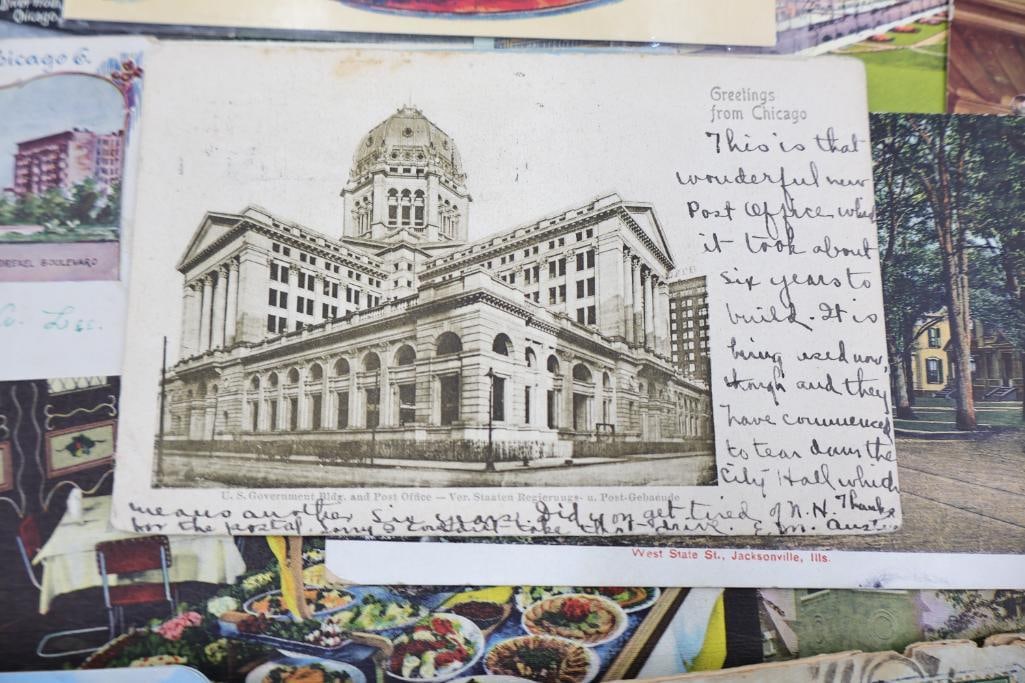 Chicago.
Chicago 6.
DREXEL BOULEVARD
Greetings
from Chicago
This is that
wonderful new
Post Office which
it took about
six years to
build. It is
being used now
though and they
have commenced
to tear down the
City Hall which
U. S. Government Bldg. and Post Office — Ver. Staaten Regierungs- u. Post-Gebaeude
means another six years. Did you get tired of N.H. Thanks
for the postal. Sorry I couldnt take that drive.
West State St., Jacksonville, Ills.